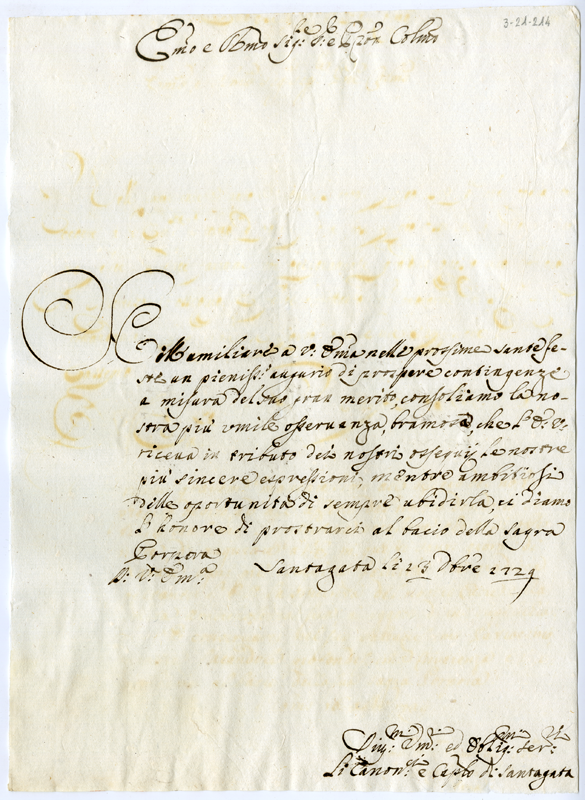 3-21-214
Emo e Rmo Sig.r S.r e Pron Colmo
Nell'umiliare a V. Emza nelle prossime sante fe-
ste un pieniss.o augurio di prospere contingenze
a misura del suo gran merito, consoliamo la no-
stra più umile osservanza, bramosa, che l'E. V.
riceva in tributo dei nostri ossequij le nostre
più sincere espressioni, mentre ambitiosi
delle oportunità di sempre ubidirla, ci diamo
l'honore di prostrarci al bacio della Sagra
Porpora
D. V. Em.a Santagata li 13 Dbre 1729
Um.i ed Oblig.mi Ser.ri
Li Canon.ci e Caplo di Santagata